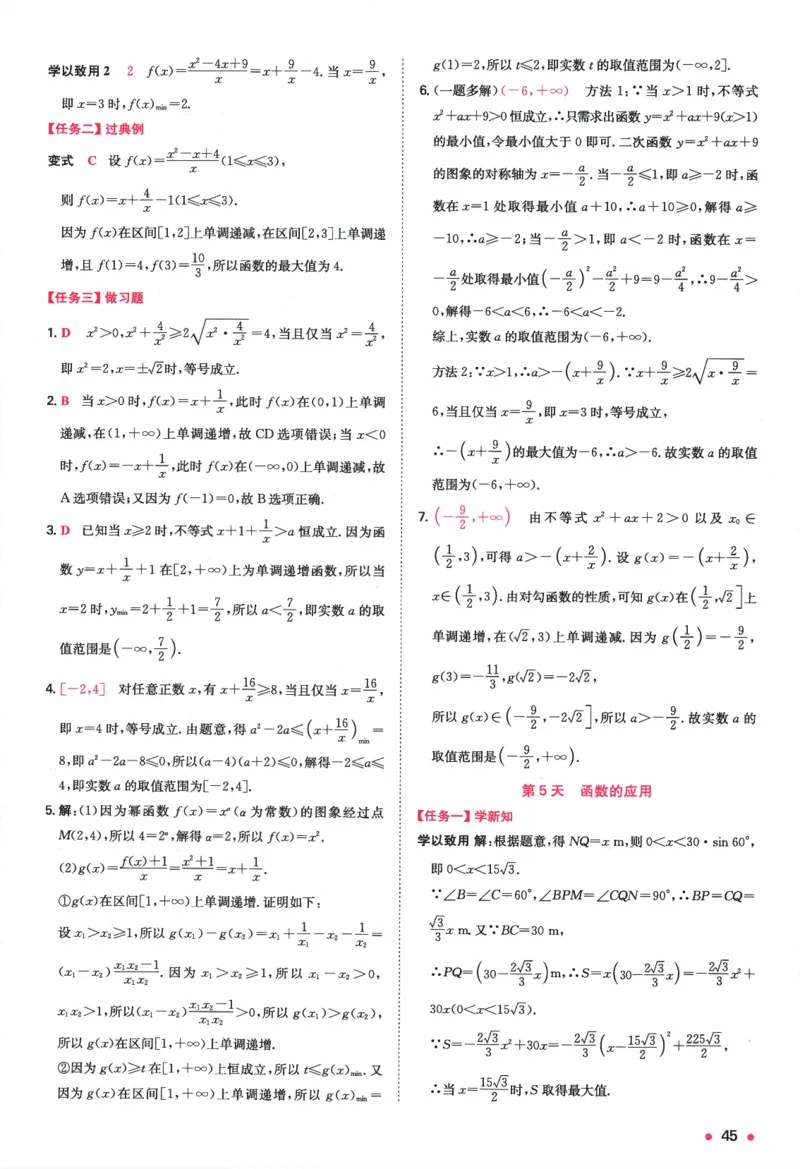 学以致用2 2 f(x)=\frac{x²-4x+9}{x}=x+\frac{9}{x}-4.当 x=\frac{9}{x},
即 x=3 时,f(x)_{min}=2.
【任务二】过典例
变式 C 设 f(x)=\frac{x²-x+4}{x}(1≤x≤3),
则 f(x)=x+\frac{4}{x}-1(1≤x≤3).
因为 f(x)在区间[1,2]上单调递减,在区间[2,3]上单调递
增,且 f(1)=4,f(3)=\frac{10}{3},所以函数的最大值为 4.
【任务三】做习题
1. D x²>0,x²+\frac{4}{x²}≥2\sqrt{x²·\frac{4}{x²}}=4,当且仅当 x²=\frac{4}{x²},
即 x²=2,x=±√2时,等号成立.
2. B 当 x>0 时,f(x)=x+\frac{1}{x},此时 f(x)在(0,1)上单调
递减,在(1,+∞)上单调递增,故 CD 选项错误;当 x<0
时,f(x)=-x+\frac{1}{x},此时 f(x)在(-∞,0)上单调递减,故
A 选项错误;又因为 f(-1)=0,故 B 选项正确.
3. D 已知当 x≥2 时,不等式 x+1+\frac{1}{x}>a 恒成立.因为函
数 y=x+\frac{1}{x}+1 在[2,+∞)上为单调递增函数,所以当
x=2 时,y_{min}=2+\frac{1}{2}+1=\frac{7}{2},所以 a<\frac{7}{2},即实数 a 的取
值范围是(-∞,\frac{7}{2}).
4. [-2,4] 对任意正数 x,有 x+\frac{16}{x}≥8,当且仅当 x=\frac{16}{x},
即 x=4 时,等号成立.由题意,得 a²-2a≤(x+\frac{16}{x})_{min}=
8,即 a²-2a-8≤0,所以(a-4)(a+2)≤0,解得-2≤a≤
4,即实数 a 的取值范围为[-2,4].
5. 解:(1)因为幂函数 f(x)=x^α(α 为常数)的图象经过点
M(2,4),所以 4=2^α,解得 α=2,所以 f(x)=x².
(2)g(x)=\frac{f(x)+1}{x}=\frac{x²+1}{x}=x+\frac{1}{x}.
①g(x)在区间[1,+∞)上单调递增.证明如下:
设 x₁>x₂≥1,所以 g(x₁)-g(x₂)=x₁+\frac{1}{x₁}-x₂-\frac{1}{x₂}=
(x₁-x₂)\frac{x₁x₂-1}{x₁x₂}.因为 x₁>x₂≥1,所以 x₁-x₂>0,
x₁x₂>1,所以(x₁-x₂)\frac{x₁x₂-1}{x₁x₂}>0,所以 g(x₁)>g(x₂),
所以 g(x)在区间[1,+∞)上单调递增.
②因为 g(x)≥t 在[1,+∞)上恒成立,所以 t≤g(x)_{min}.又
因为 g(x)在区间[1,+∞)上单调递增,所以 g(x)_{min}=
g(1)=2,所以 t≤2,即实数 t 的取值范围为(-∞,2].
6. (一题多解)(-6,+∞) 方法 1:∵当 x>1 时,不等式
x²+ax+9>0 恒成立,∴只需求出函数 y=x²+ax+9(x>1)
的最小值,令最小值大于 0 即可.二次函数 y=x²+ax+9
的图象的对称轴为 x=-\frac{a}{2}.当-\frac{a}{2}≤1,即 a≥-2 时,函
数在 x=1 处取得最小值 a+10,∴a+10≥0,解得 a≥
-10,∴a≥-2;当-\frac{a}{2}>1,即 a<-2 时,函数在 x=
-\frac{a}{2}处取得最小值(-\frac{a}{2})²-\frac{a²}{2}+9=9-\frac{a²}{4},∴9-\frac{a²}{4}>
0,解得-6<a<6,∴-6<a<-2.
综上,实数 a 的取值范围为(-6,+∞).
方法 2:∵x>1,∴a>-(x+\frac{9}{x}).∵x+\frac{9}{x}≥2\sqrt{x·\frac{9}{x}}=
6,当且仅当 x=\frac{9}{x},即 x=3 时,等号成立,
∴-(x+\frac{9}{x})的最大值为-6,∴a>-6.故实数 a 的取值
范围为(-6,+∞).
7. (-\frac{9}{2},+∞) 由不等式 x²+ax+2>0 以及 x₀∈
(\frac{1}{2},3),可得 a>-(x+\frac{2}{x}).设 g(x)=-(x+\frac{2}{x}),
x∈(\frac{1}{2},3).由对勾函数的性质,可知 g(x)在(\frac{1}{2},√2]上
单调递增,在(√2,3)上单调递减.因为 g(\frac{1}{2})=-\frac{9}{2},
g(3)=-\frac{11}{3},g(√2)=-2√2,
所以 g(x)∈(-\frac{9}{2},-2√2],所以 a>-\frac{9}{2}.故实数 a 的
取值范围是(-\frac{9}{2},+∞).
第 5 天 函数的应用
【任务一】学新知
学以致用 解:根据题意,得 NQ=x m,则 0<x<30·sin 60°,
即 0<x<15√3.
∵∠B=∠C=60°,∠BPM=∠CQN=90°,∴BP=CQ=
\frac{√3}{3}x m.又∵BC=30 m,
∴PQ=(30-\frac{2√3}{3}x)m,∴S=x(30-\frac{2√3}{3}x)=-\frac{2√3}{3}x²+
30x(0<x<15√3).
∵S=-\frac{2√3}{3}x²+30x=-\frac{2√3}{3}(x-\frac{15√3}{2})²+\frac{225√3}{2},
∴当 x=\frac{15√3}{2}时,S 取得最大值.
45